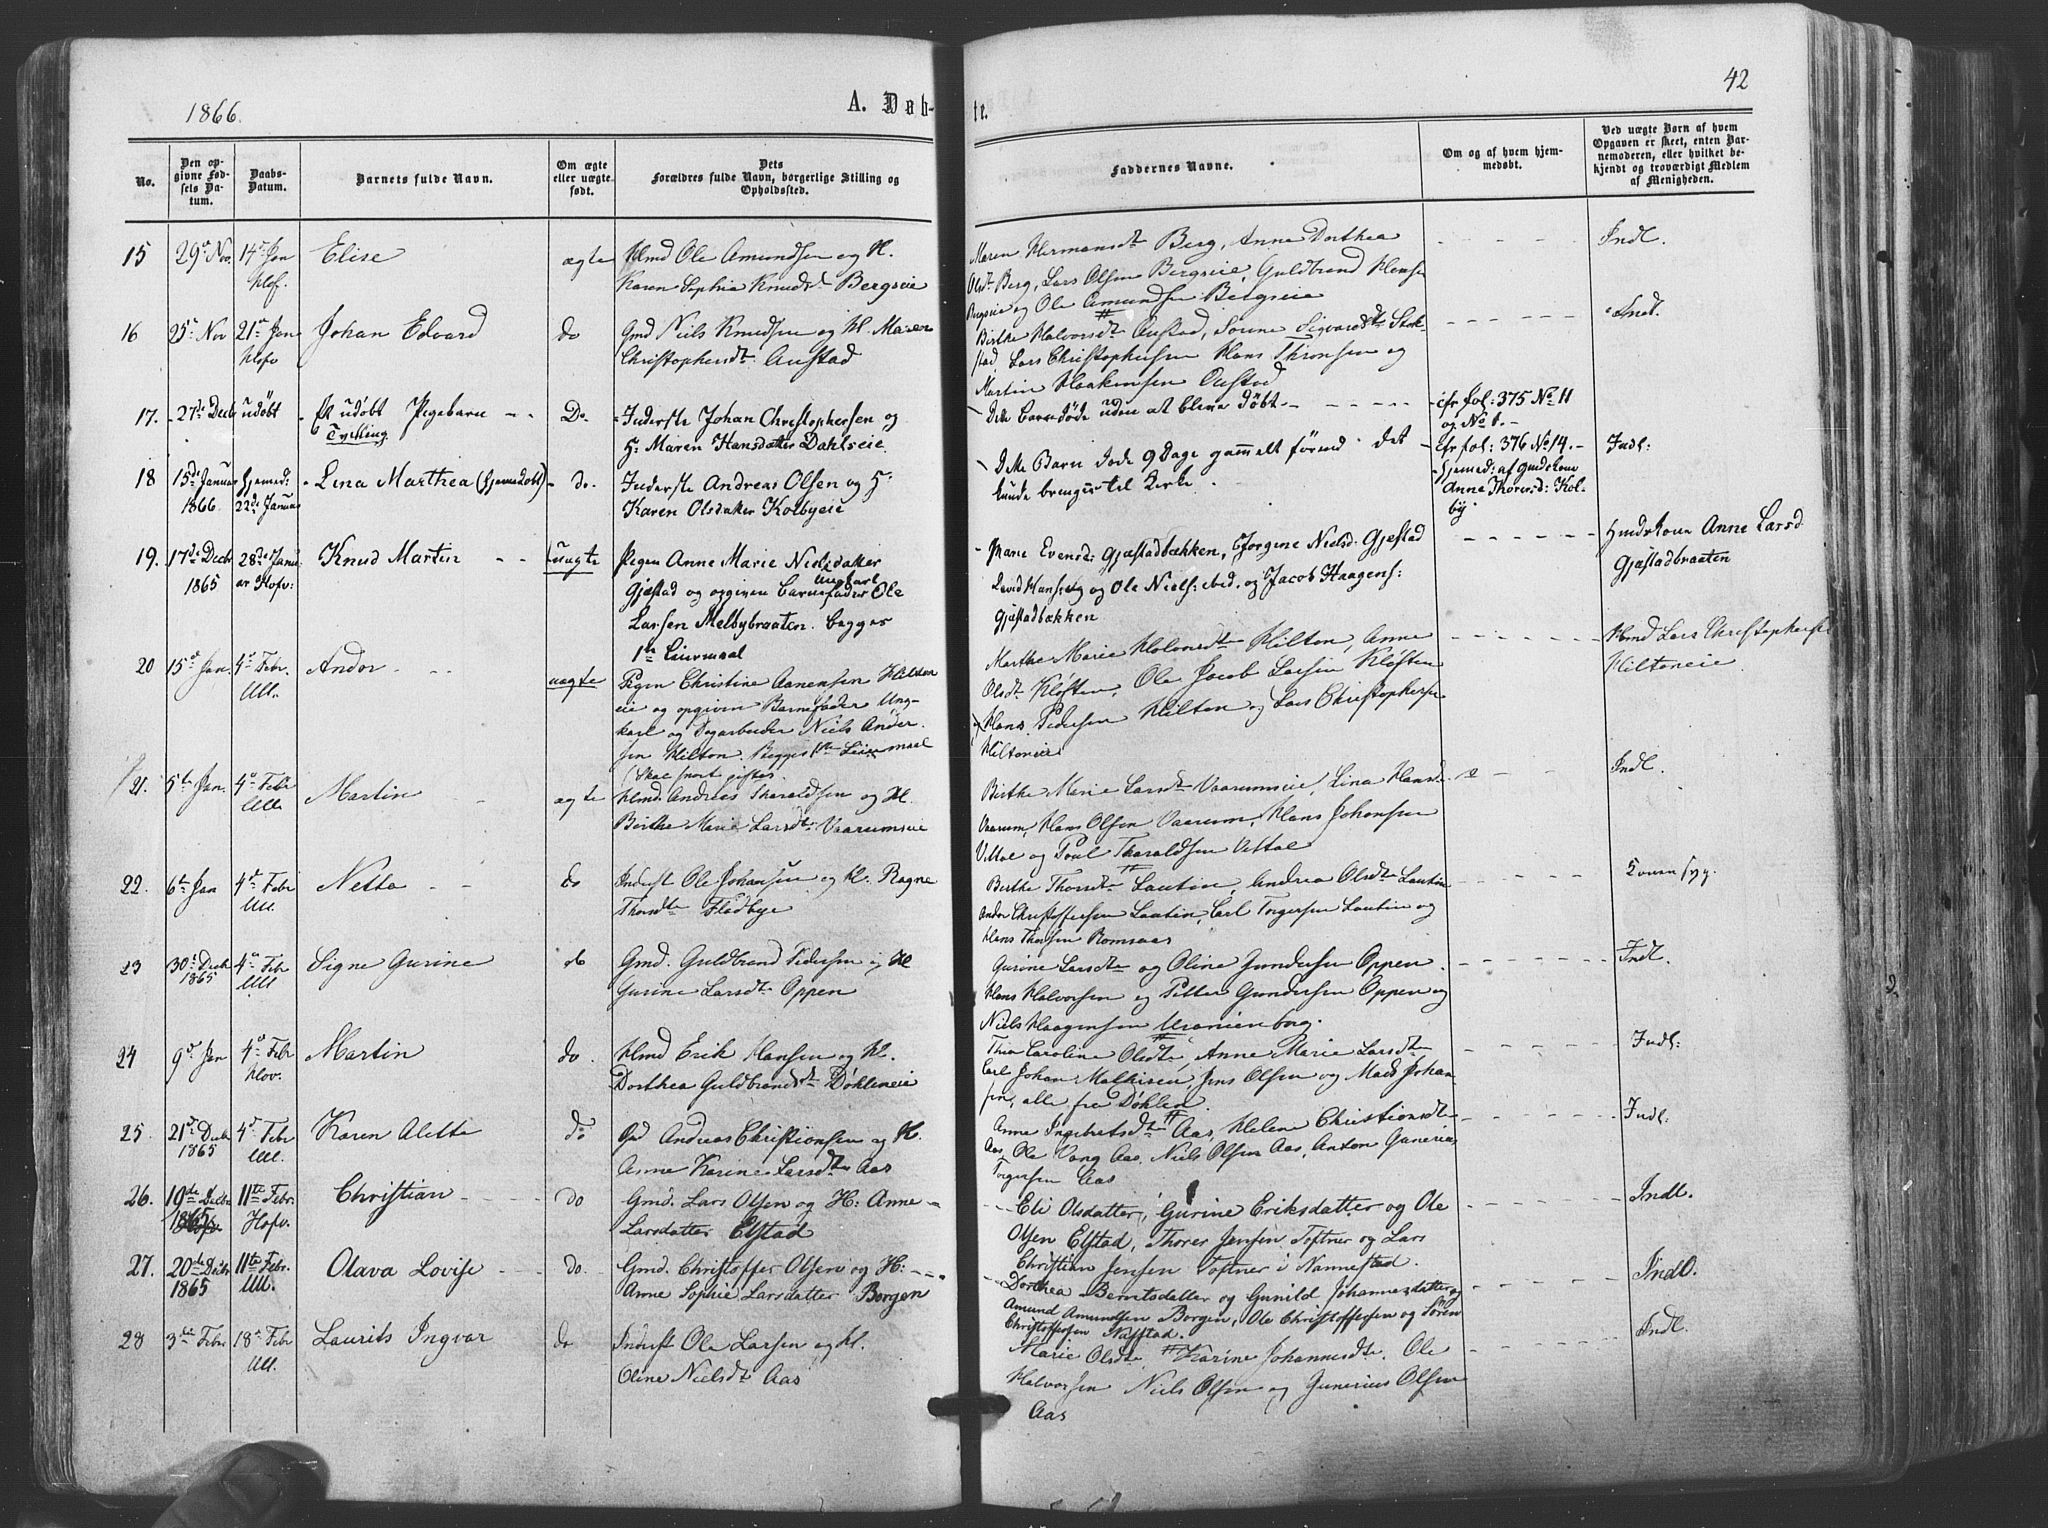 1866.
A. Døb-
te.
42
No.
Den op-
givne Fød-
sels Da-
tum.
Daabs-
Datum.
Barnets fulde Navn.
Om ægte
eller uægte
født.
Dets
Forældres fulde Navn, borgerlige Stilling og
Opholdssted.
Faddernes Navne.
Om og af hvem hjem-
medøbt.
Ved uægte Børn af hvem
Opgaven er skeet, enten Bar-
nemoderen, eller hvilket be-
kjendt og troværdigt Medlem
af Menigheden.
15
29de Nov.
14de Jan
Hof.
Elise
ægte
Hmd Ole Amundsen og H.
Karen Sophia Knudsdt Bergseie
Maren Hermansdt Berg, Anne Dorthea
Olsdt Berg, Lars Olsen Bergseie, Guldbrand Hansen
Bergseie og Ole Amundsen Bergseie
Indl.
16
25de Nov
21de Jan
Hofv
Johan Edvard
do
Gmd Niels Knudsen og H. Maren
Christophersdt Austad
Birthe Halvorsdt Austad, Sorine Sigvardsdt Stok-
stad, Lars Christophersen Hans Thronsen og
Martin Haakensen Austad
Indl.
17.
27de Decb
udøbt
Et udøbt Pigebarn
Tvilling.
Do
Inderste Johan Christophersen og
H: Maren Hansdatter Dahlseie.
Dette Barn døde uden at blive døbt
cfr fol: 375 No 11
og No 1.
18
15de Januar
1866.
Hjemmed:
22de Januar
Lina Marthea (hjemmedøbt)
do.
Inderste Andreas Olsen og H.
Karen Olsdatter Kolbyeie
Dette Barn døde 9 Dage gammelt førend det
kunde bringes til Kirke.
cfr fol: 376 No 14.
Hjemmed: af Gmdskone
Anne Thoresd: Kol-
by.
Indl:
19.
17de Decbr
1865
28de Janu-
ar Hofv:
Knud Martin
Uægte
Pigen Anne Marie Nielsdatter
Gjæstad og opgiven Barnefader Ungkarl Ole
Larsen Melbybraaten. begges
1ste Leiermaal
Marie Evensd: Gjæstadbækken, Jorgine Nielsd: Gjestad
David Hansen og Ole Niels: ibid. og Jacob Haagens:
Gjæstadbækken
Gmdskone Anne Larsd
Gjæstadbraaten
20
15de Jan.
4de Febr.
Ull.
Andor
uægte
Pigen Christine Aanensen Hilton
eie og opgiven Barnefader Ung-
karl og Dagarbeider Niels Ander-
sen Hilton. Begges 1ste Leiermaal
(skal snart giftes.
Marthe Marie Halvorsdt Hilton, Anne
Olsdt Kløften, Ole Jacob Larsen Kløften
Hans Pedersen Hilton og Lars Christophersen
Hiltoneie
Hmd Lars Christophersen
Hiltoneie.
21.
5te Jan.
4de Febr
Ull.
Martin
ægte
Hmd. Andreas Tharaldsen og H.
Birthe Marie Larsdt Vaarumseie
Birthe Marie Larsdt Vaarumseie, Lina Hansdt
Vaarum, Hans Olsen Vaarum, Hans Johansen
Vittal og Poul Tharaldsen Vittal
Indl.
22.
6te Jan
4de Febr
Ull.
Netta
do
Inderst Ole Johansen og H. Ragne
Thorsdt Fladbye
Berthe Thorsdt Lautin, Andrea Olsdt Lautin
Andor Christoffersen Lautin, Carl Torgersen Lautin og
Hans Thorsen Romsaas
23
30te Decbr
1865
4de Febr
Ull.
Signe Gurine
do
Gmd. Guldbrand Pedersen og H
Gurine Larsdt Oppen
Gurine Larsdt og Oline Gundersen Oppen.
Hans Halvorsen og Petter Gundersen Oppen og
Niels Haagensen Uranienborg.
Indl.
24
9de Jan
4de Febr
Hov.
Martin
do.
Hmd Erik Hansen og H.
Dorthea Guldbrandsdt Døhleneie
Thea Caroline Olsdt, Anne Marie Larsdt
Carl Johan Mathisen, Jens Olsen og Mads Johan
sen, alle fra Døhlen
Indl:
25.
21de Decbr
1865
4de Febr
Ull.
Karen Alette
do
Gmd Andreas Christiansen og H.
Anne Karine Larsdt Aas
Anne Ingebretsdt Aas, Helene Christiansdt
Aas, Ole Vang Aas, Niels Olsen Aas, Anton Gunerius
Torgersen Aas
Indl:
26.
19de Decbr.
1865
11te Febr.
Hofv.
Christian
do
Gmd. Lars Olsen og H: Anne
Larsdatter Elstad
Eli Olsdatter, Gurine Eriksdatter og Ole
Olsen Elstad, Thorer Jensen Toftner og Lars
Christian Jensen Toftner i Nannestad.
Indl.
27.
20de Decbr
1865
11te Febr.
Ull.
Olava Lovise
do.
Gmd. Christoffer Olsen og H:
Anne Sophie Larsdatter Borgen
Dorthea Berntsdatter og Gunild Johannesdatter og
Amund Amundsen Borgen, Ole Christoffersen og Søren
Christoffersen Nafstad.
Indl.
28
3die Febr
18de Febr
Ull.
Laurits Ingvar
do
Inderst Ole Larsen og H.
Oline Nielsdt Aas
Marie Olsdt, Karine Johannesdt. Ole
Halvorsen Niels Olsen og Gunerius Olsen
Aas
Indl.